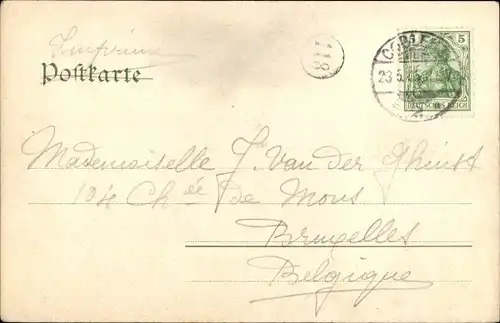 Imprimé
Postkarte
118
5
23.5.
DEUTSCHES REICH
Mademoiselle J. Van der Ghinst
104 Chée de Mons
Bruxelles
Belgique